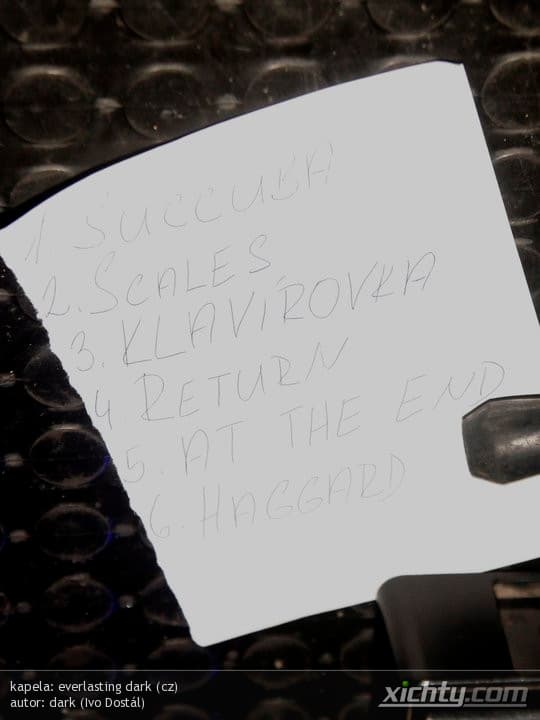 1 SUCCUBA
2. SCALES
3. KLAVÍROVKA
4 RETURN
5. AT THE END
6. HAGGARD
kapela: everlasting dark (cz)
autor: dark (Ivo Dostál)
xichty.com